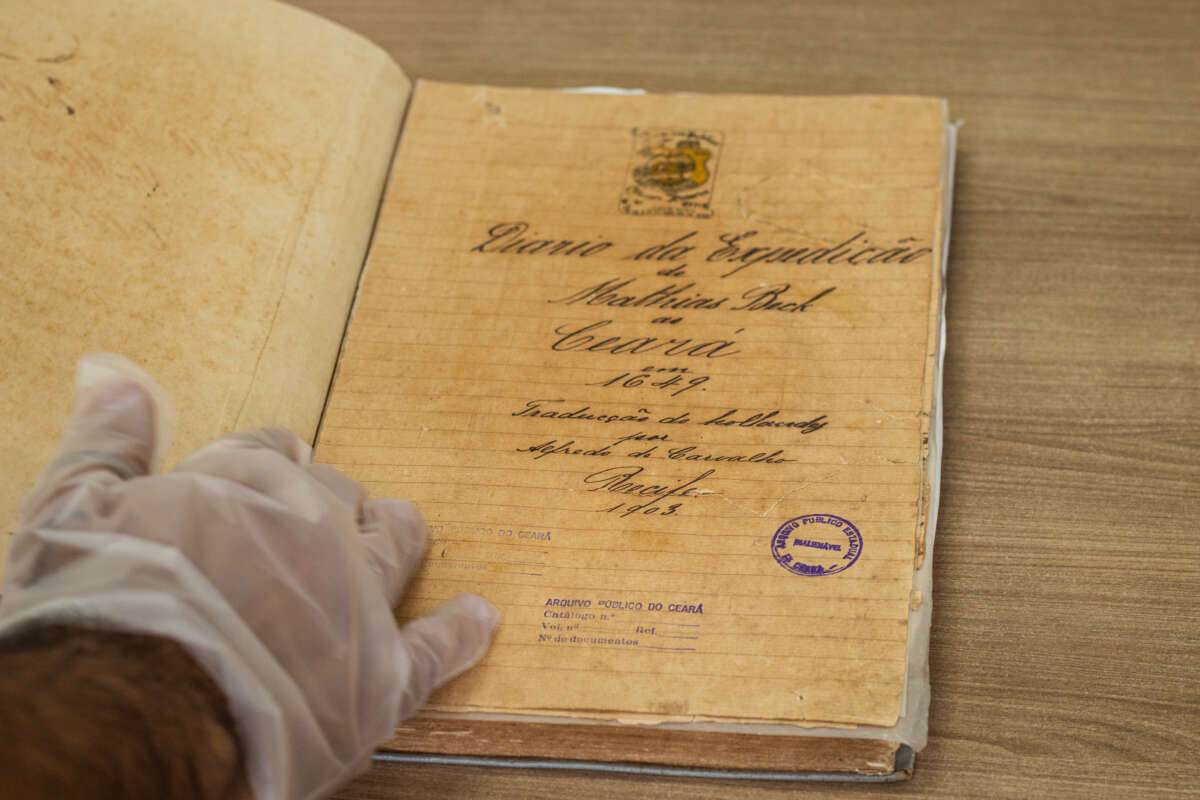 Diario da Expedição
de
Mathias Beck
ao
Ceará
em
1649.
Traducção do hollandez
por
Alfredo de Carvalho
Recife
1903.
ARQUIVO PUBLICO ESTADUAL
INALIENÁVEL
DO CEARÁ
VO PÚBLICO DO CEARÁ
ARQUIVO PÚBLICO DO CEARÁ
Catálogo n.º
Vol. nº Ref.
Nº de documentos